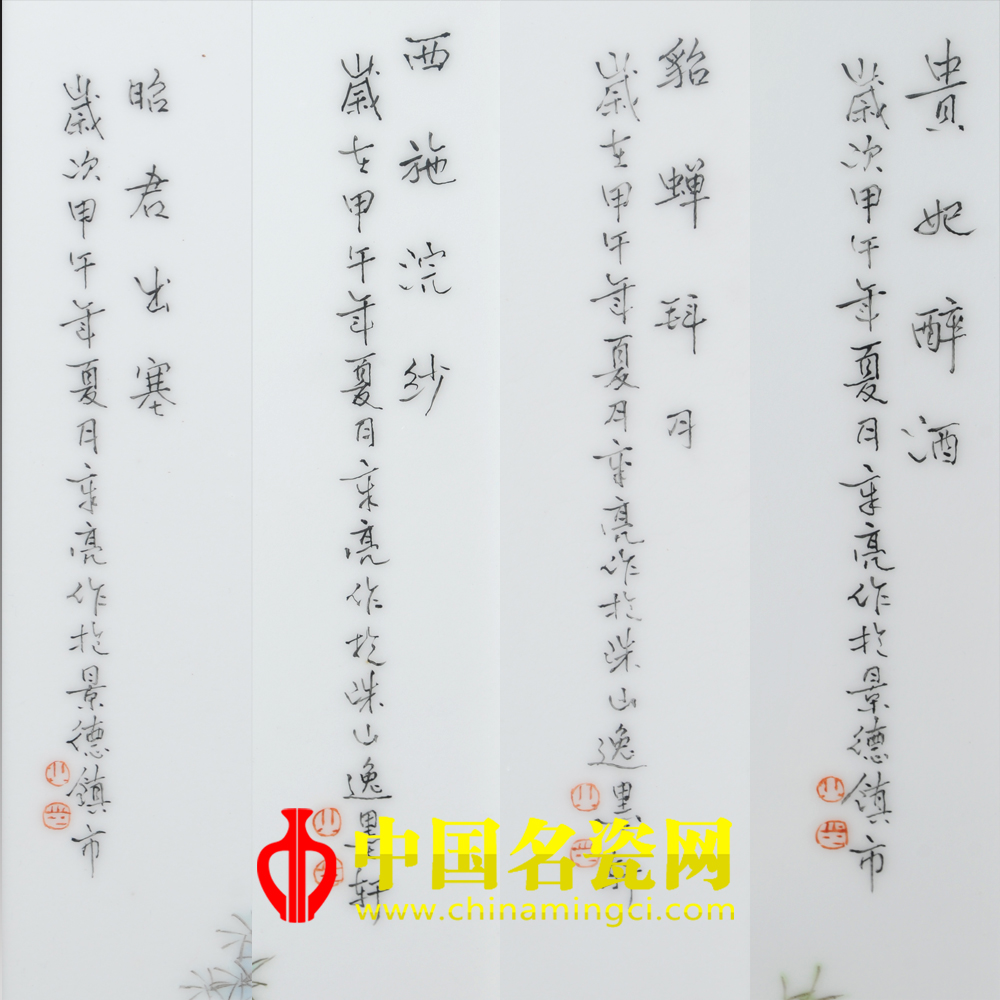 貴妃醉酒
歲次甲午年夏月章亮作於景德鎮市
貂蝉拜月
歲在甲午年夏月章亮作於珠山逸墨轩
西施浣纱
歲在甲午年夏月章亮作於珠山逸墨轩
昭君出塞
歲次甲午年夏月章亮作於景德鎮市
中国名瓷网
www.chinamingci.com